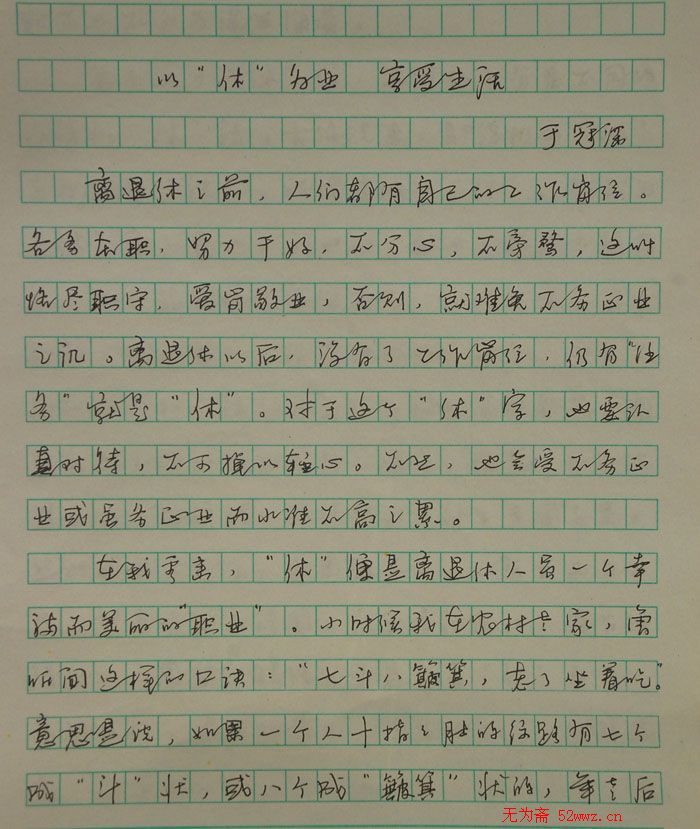 以“休”为业 享受生活
于冠深
离退休之前，人们都有自己的工作岗位。
各务本职，努力干好，不分心，不旁骛，这叫
恪尽职守，爱岗敬业，否则，就难免不务正业
之讥。离退休以后，没有了工作岗位，仍有“任
务”就是“休”。对于这个“休”字，也要认
真对待，不可掉以轻心。不然，也会受不务正
业或虽务正业而水准不高之累。
在我看来，“休”便是离退休人员一个幸
福而美丽的“职业”。小时候我在农村老家，屡
听闻这样的口诀：“七斗八簸箕，老了坐着吃。”
意思是说，如果一个人十指之肚的纹路有七个
成“斗”状，或八个成“簸箕”状的，年老后
无为斋 52wwz.cn